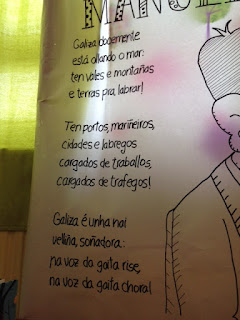 MANUEL
Galiza docemente
está ollando o mar:
ten vales e montañas
e terras pra labrar!
Ten portos, mariñeiros,
cidades e labregos
cargados de traballos,
cargados de trafegos!
Galiza é unha nai
velliña, soñadora:
na voz da gaita rise,
na voz da gaita chora!